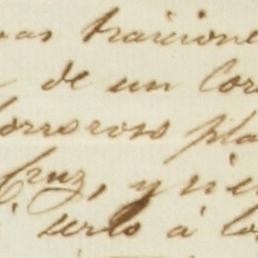 vas traicione
de un cor
horroroso pla
Cruz, y sie
serlo á lo